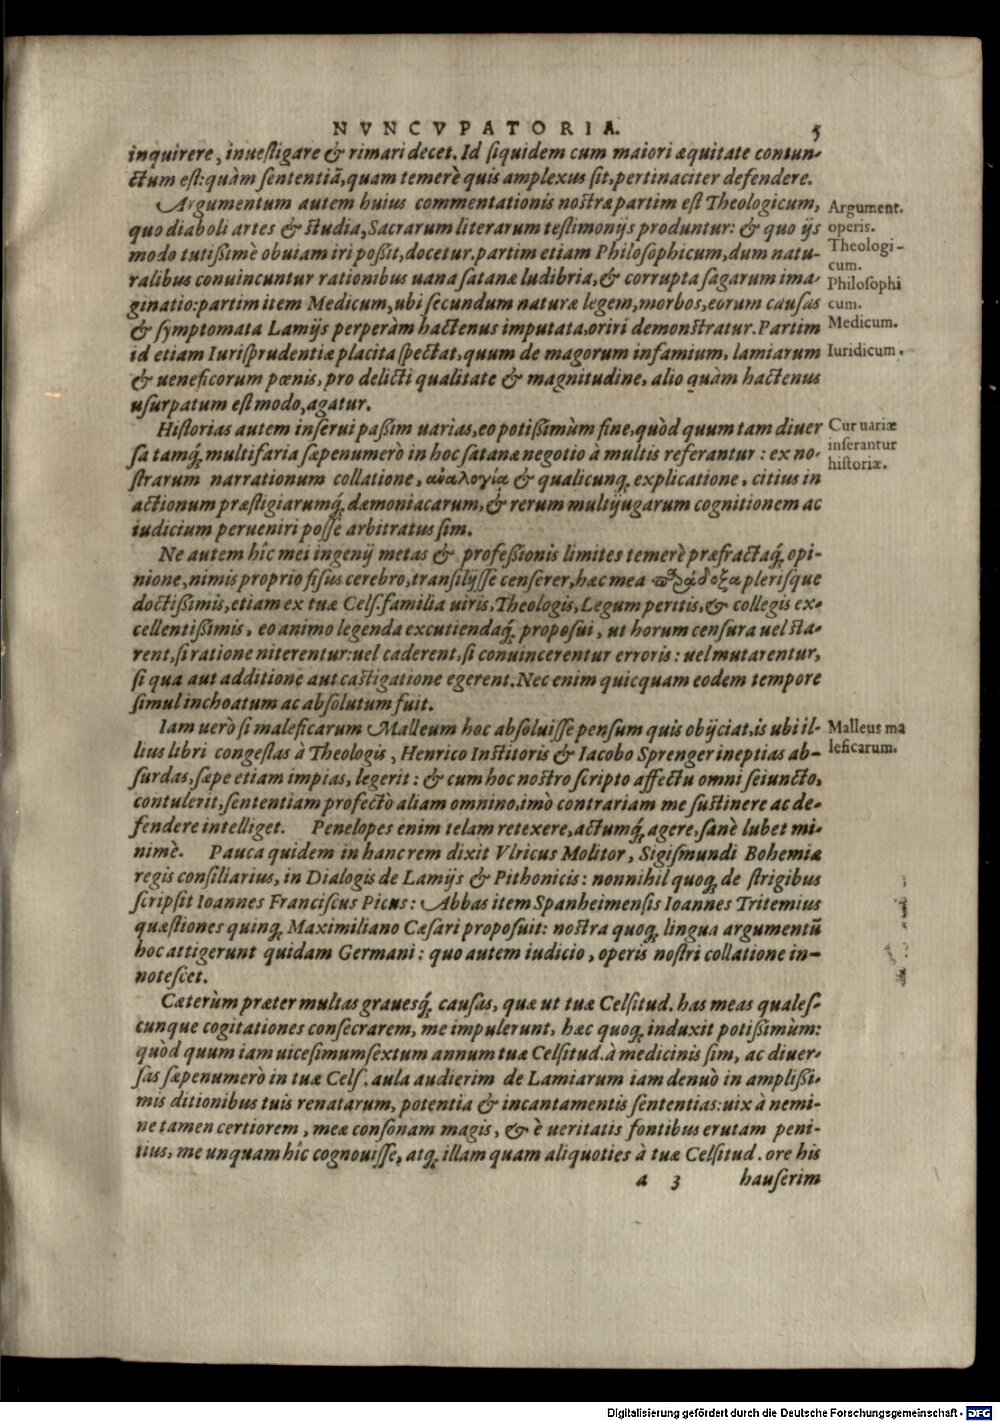 NVNCVPATORIA. 5
inquirere, inueſtigare & rimari decet. Id ſiquidem cum maiori æquitate coniun-
ctum eſt: quàm ſententiā, quam temerè quis amplexus ſit, pertinaciter defendere.
Argumentum autem huius commentationis noſtræ partim eſt Theologicum,
quo diaboli artes & ſtudia, Sacrarum literarum teſtimonijs produntur: & quo ijs
modo tutißimè obuiam iri poßit, docetur. partim etiam Philoſophicum, dum natu-
ralibus conuincuntur rationibus uana ſatanæ ludibria, & corrupta ſagarum ima-
ginatio: partim item Medicum, ubi ſecundum naturæ legem, morbos, eorum cauſas
& ſymptomata Lamijs perperàm hactenus imputata, oriri demonſtratur. Partim
id etiam Iuriſprudentiæ placita ſpectat, quum de magorum infamium, lamiarum
& ueneficorum pœnis, pro delicti qualitate & magnitudine, alio quàm hactenus
uſurpatum eſt modo, agatur.
Argument.
operis.
Theologi-
cum.
Philoſophi
cum.
Medicum.
Iuridicum.
Hiſtorias autem inſerui paßim uarias, eo potißimùm fine, quòd quum tam diuer
ſa tamq́; multifaria ſæpenumerò in hoc ſatanæ negotio à multis referantur: ex no-
ſtrarum narrationum collatione, ἀναλογία & qualicunq; explicatione, citius in
actionum præſtigiarumq́; dæmoniacarum, & rerum multijugarum cognitionem ac
iudicium perueniri poſſe arbitratus ſim.
Cur uariæ
inſerantur
hiſtoriæ.
Ne autem hîc mei ingenij metas & profeßionis limites temerè præfractaq́; opi-
nione, nimis proprio fiſus cerebro, tranſilijſſe cenſerer, hæc mea παράδοξα pleriſque
doctißimis, etiam ex tuæ Celſ. familia uiris, Theologis, Legum peritis, & collegis ex-
cellentißimis, eo animo legenda excutiendaq́; propoſui, ut horum cenſura uel ſta-
rent, ſi ratione niterentur: uel caderent, ſi conuincerentur erroris: uel mutarentur,
ſi qua aut additione aut caſtigatione egerent. Nec enim quicquam eodem tempore
ſimul inchoatum ac abſolutum fuit.
Iam uerò ſi maleficarum Malleum hoc abſoluiſſe penſum quis obijciat, is ubi il-
lius libri congeſtas à Theologis, Henrico Inſtitoris & Iacobo Sprenger ineptias ab-
ſurdas, ſæpe etiam impias, legerit: & cum hoc noſtro ſcripto affectu omni ſeiuncto,
contulerit, ſententiam profectò aliam omnino, imò contrariam me ſuſtinere ac de-
fendere intelliget. Penelopes enim telam retexere, actumq́; agere, ſanè lubet mi-
nimè. Pauca quidem in hanc rem dixit Vlricus Molitor, Sigiſmundi Bohemiæ
regis conſiliarius, in Dialogis de Lamijs & Pithonicis: nonnihil quoq; de ſtrigibus
ſcripſit Ioannes Franciſcus Picus: Abbas item Spanheimenſis Ioannes Tritemius
quæſtiones quinq; Maximiliano Cæſari propoſuit: noſtra quoq; lingua argumentū
hoc attigerunt quidam Germani: quo autem iudicio, operis noſtri collatione in-
noteſcet.
Malleus ma
leficarum.
Cæterùm præter multas graueſq́; cauſas, quæ ut tuæ Celſitud. has meas qualeſ-
cunque cogitationes conſecrarem, me impulerunt, hæc quoq; induxit potißimùm:
quòd quum iam uiceſimumſextum annum tuæ Celſitud. à medicinis ſim, ac diuer-
ſas ſæpenumerò in tuæ Celſ. aula audierim de Lamiarum iam denuò in amplißi-
mis ditionibus tuis renatarum, potentia & incantamentis ſententias: uix à nemi-
ne tamen certiorem, meæ conſonam magis, & è ueritatis fontibus erutam peni-
tius, me unquam hîc cognouiſſe, atq; illam quam aliquoties à tuæ Celſitud. ore his
a 3 hauſerim
Digitalisierung gefördert durch die Deutsche Forschungsgemeinschaft - DFG